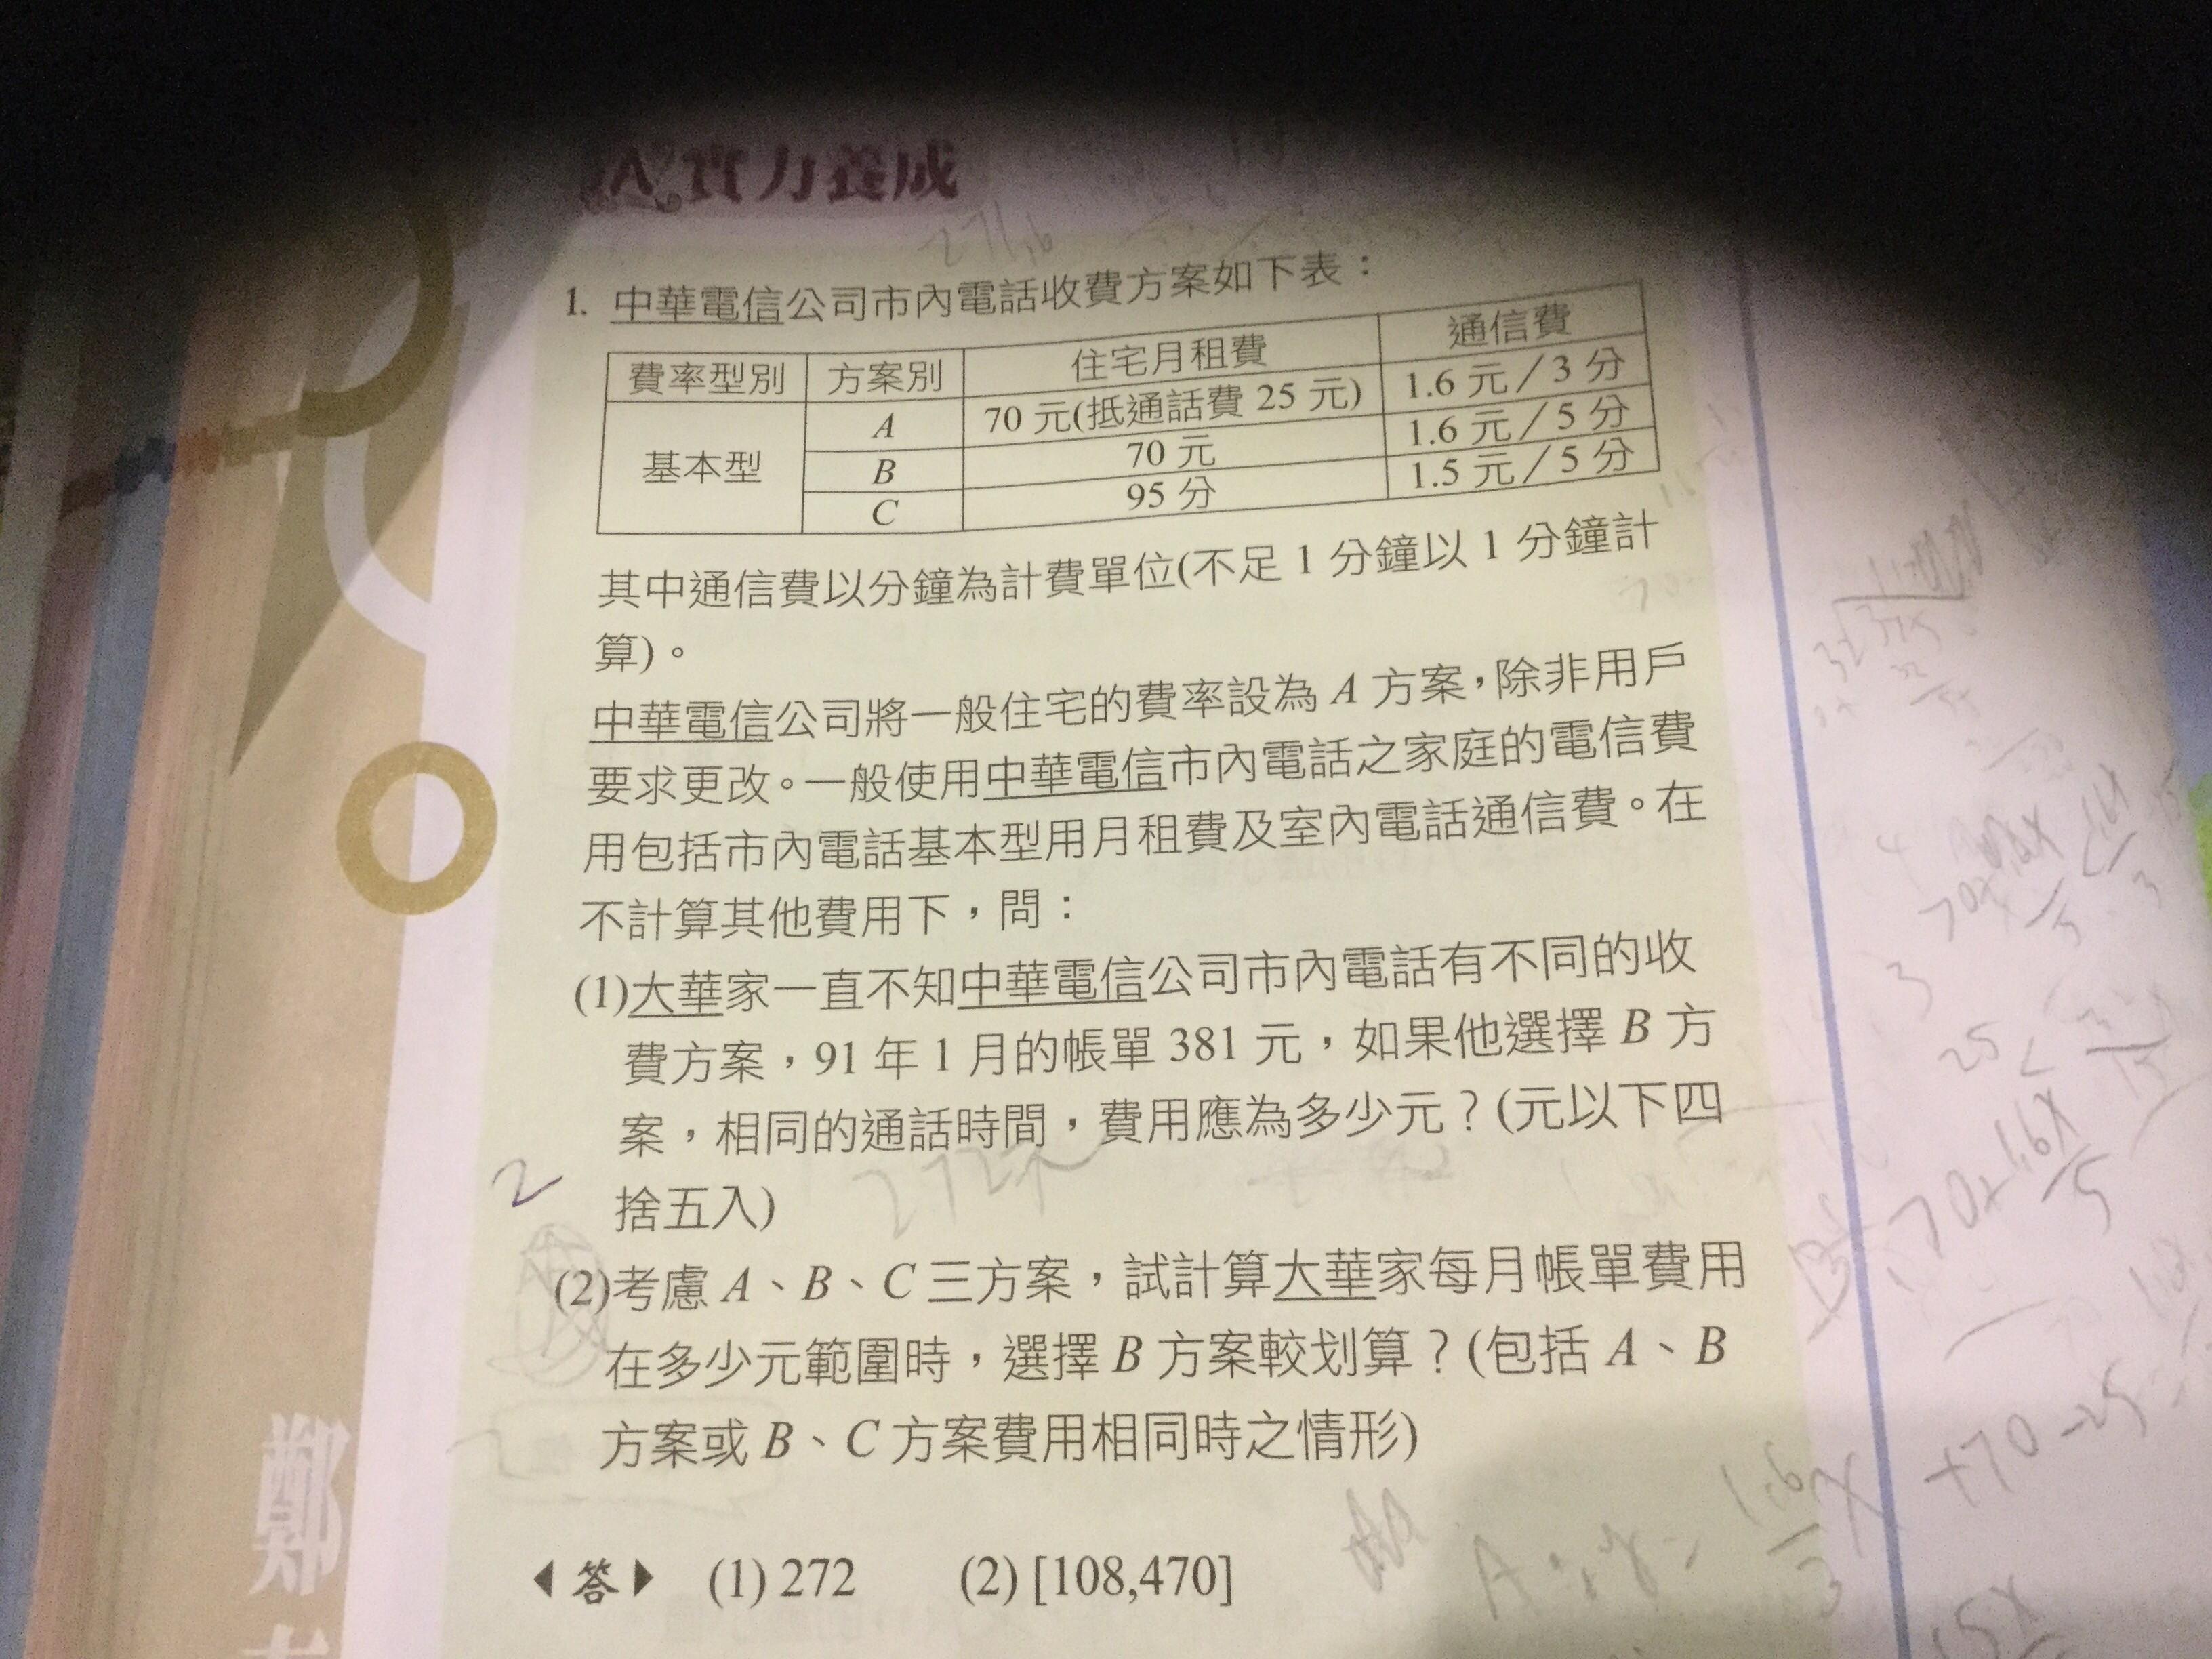 A 實力養成
271.6
1. 中華電信公司市內電話收費方案如下表：
費率型別 方案別 住宅月租費 通信費
基本型 A 70 元(抵通話費 25 元) 1.6 元／3 分
B 70 元 1.6 元／5 分
C 95 分 1.5 元／5 分
其中通信費以分鐘為計費單位(不足 1 分鐘以 1 分鐘計
算)。
中華電信公司將一般住宅的費率設為 A 方案，除非用戶
要求更改。一般使用中華電信市內電話之家庭的電信費
用包括市內電話基本型用月租費及室內電話通信費。在
不計算其他費用下，問：
(1)大華家一直不知中華電信公司市內電話有不同的收
費方案，91 年 1 月的帳單 381 元，如果他選擇 B 方
案，相同的通話時間，費用應為多少元？(元以下四
捨五入)
272元
2
(2)考慮 A、B、C 三方案，試計算大華家每月帳單費用
在多少元範圍時，選擇 B 方案較划算？(包括 A、B
方案或 B、C 方案費用相同時之情形)
答 (1) 272 (2) [108,470]
70+1.6x/5
A: y = 1.6x/3 +70-25
鄭